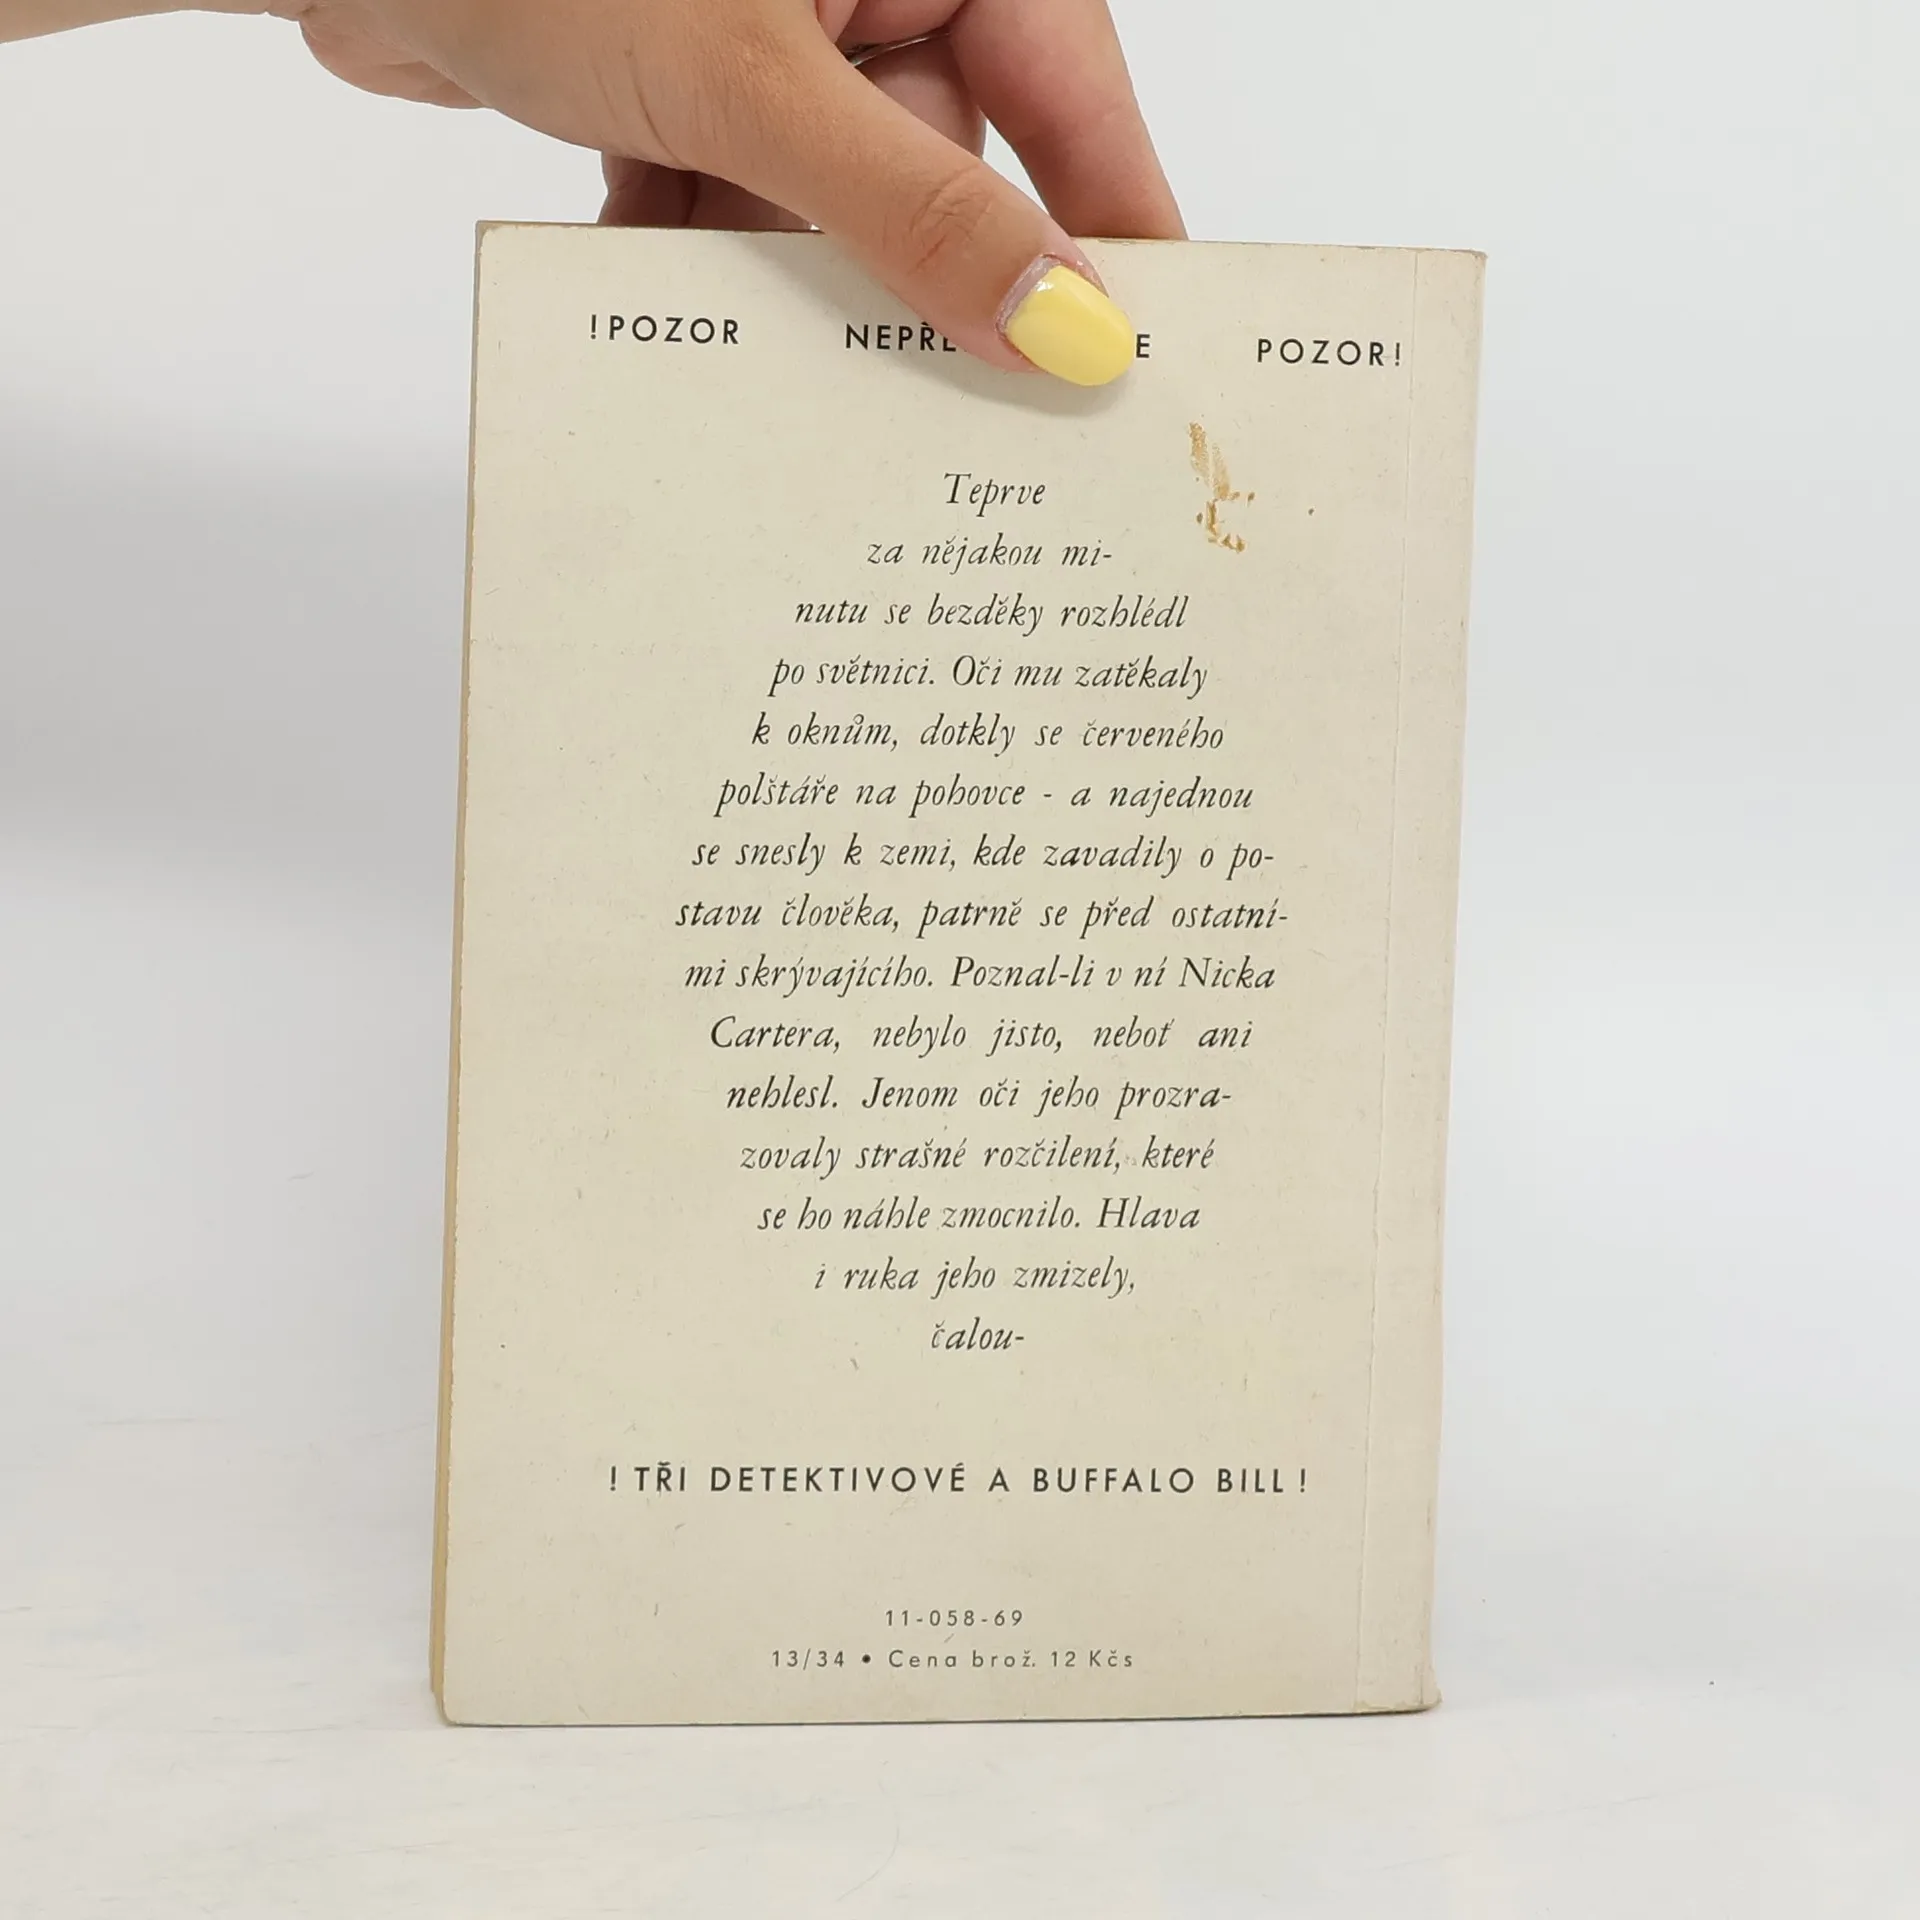 !POZOR POZOR!
Teprve
za nějakou mi-
nutu se bezděky rozhlédl
po světnici. Oči mu zatěkaly
k oknům, dotkly se červeného
polštáře na pohovce - a najednou
se snesly k zemi, kde zavadily o po-
stavu člověka, patrně se před ostatní-
mi skrývajícího. Poznal-li v ní Nicka
Cartera, nebylo jisto, neboť ani
nehlesl. Jenom oči jeho prozra-
zovaly strašné rozčilení, které
se ho náhle zmocnilo. Hlava
i ruka jeho zmizely,
čalou-
! TŘI DETEKTIVOVÉ A BUFFALO BILL !
11-058-69
13/34 • Cena brož. 12 Kčs